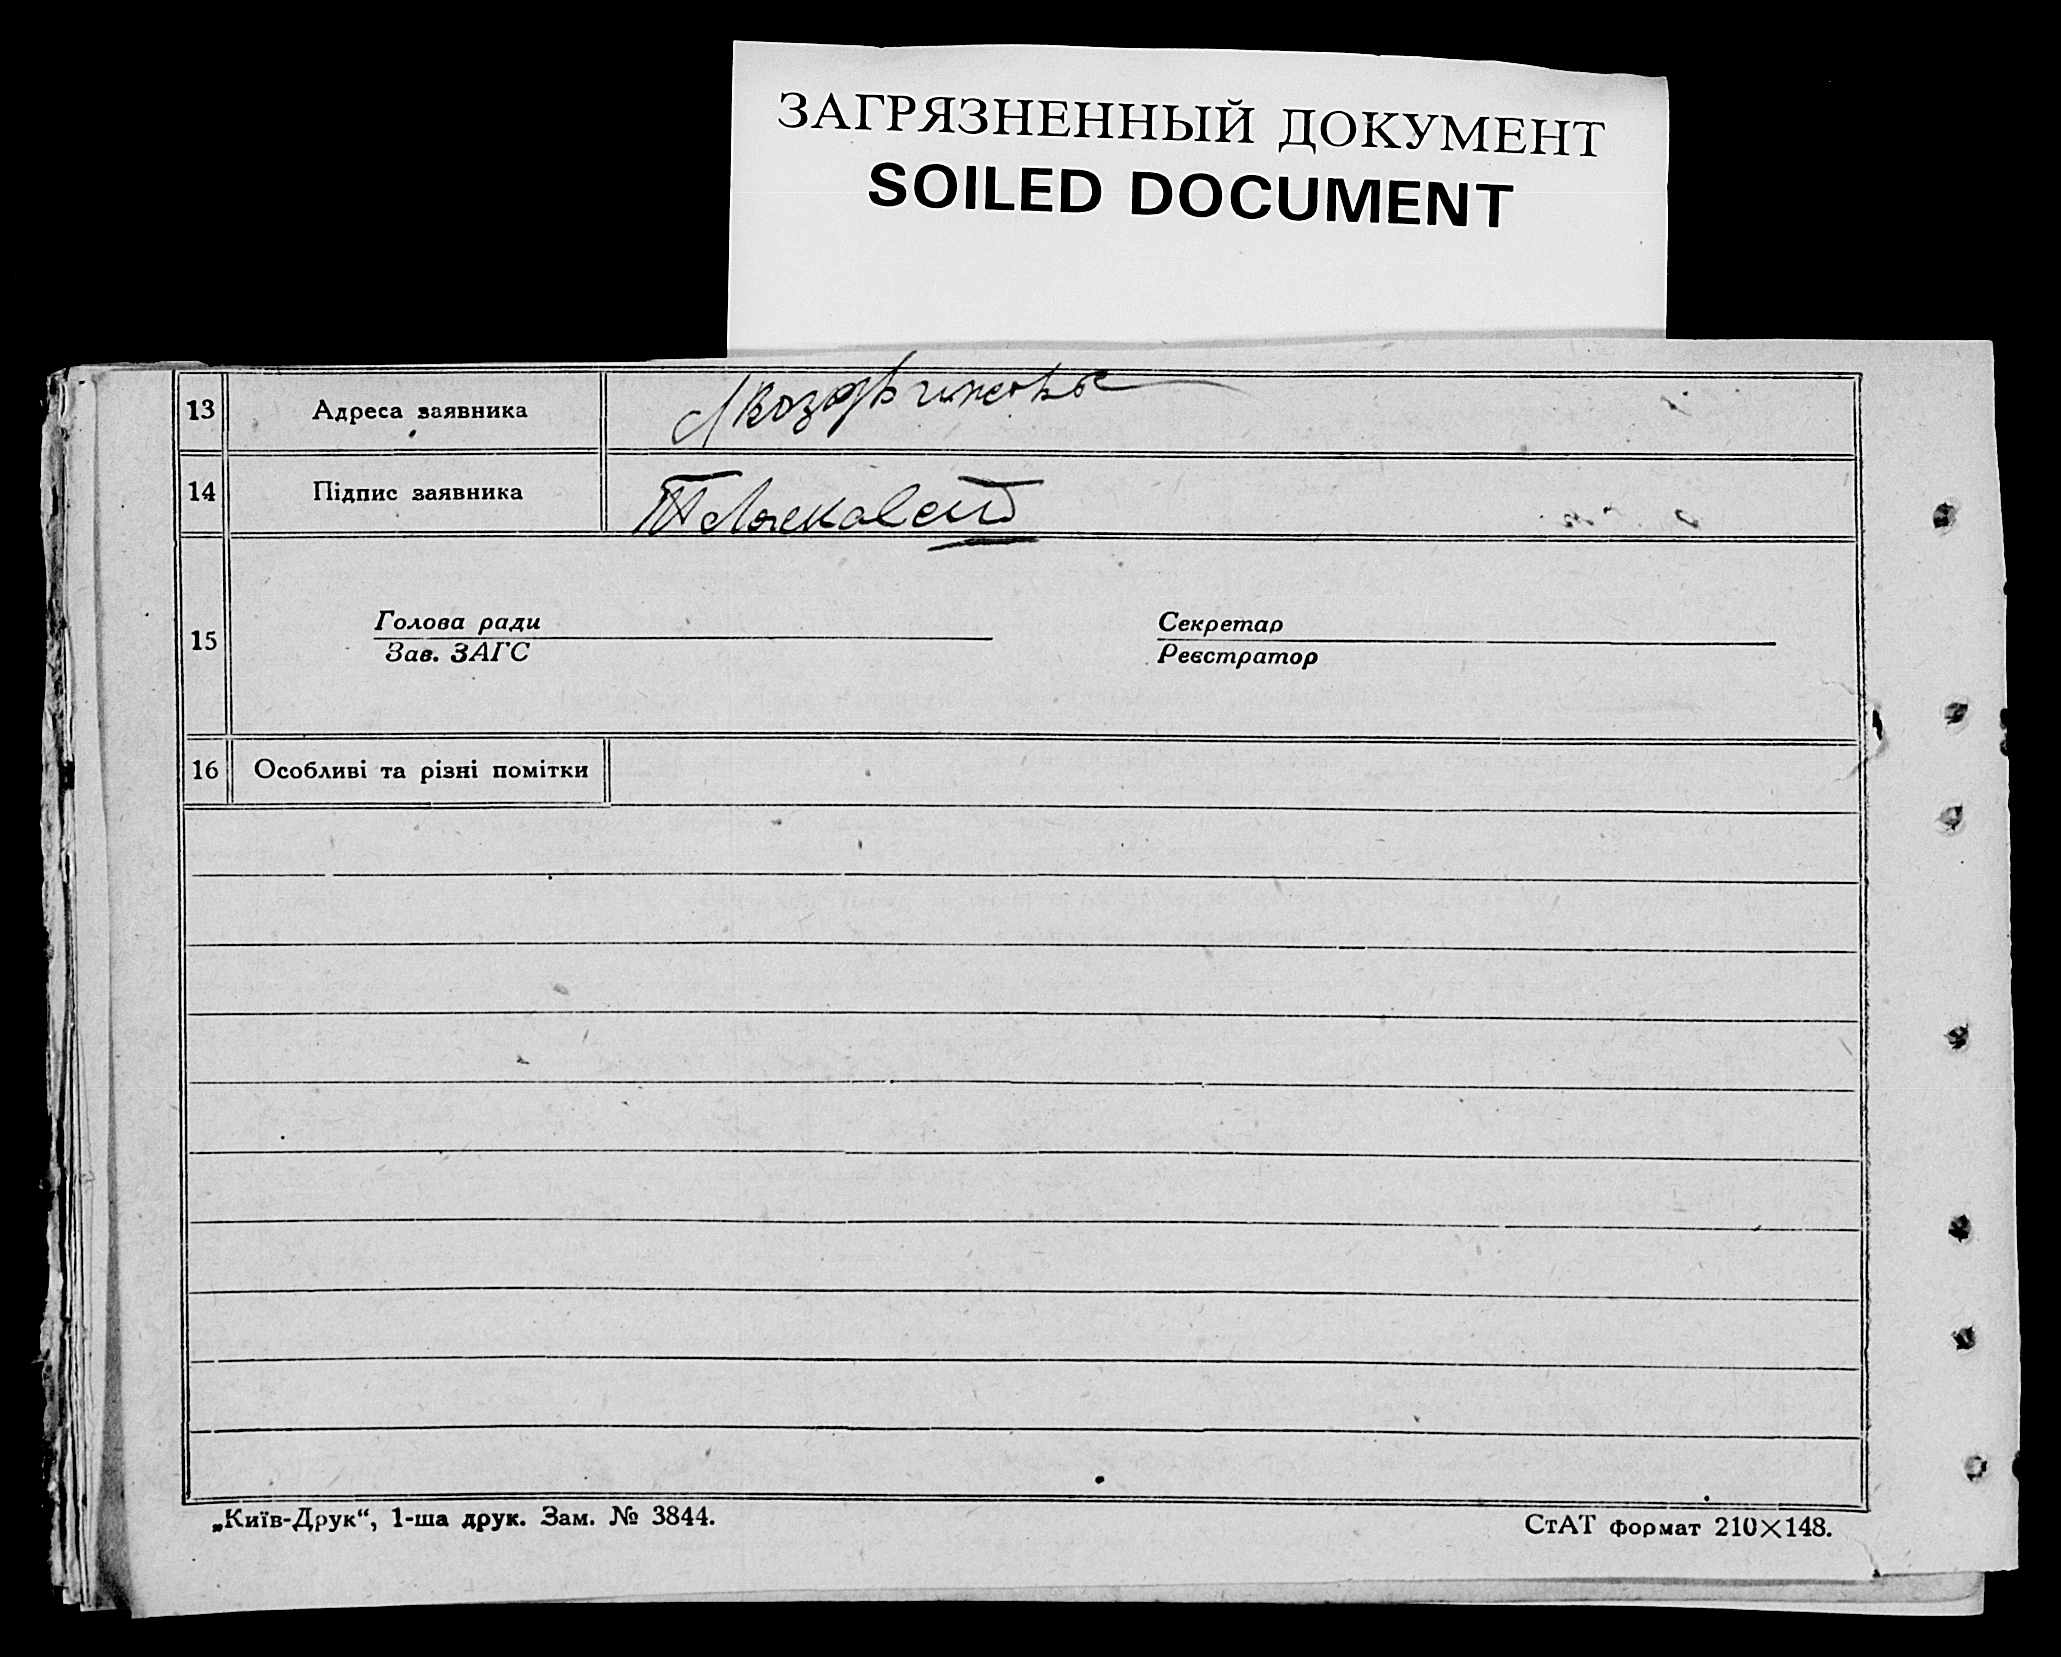 ЗАГРЯЗНЕННЫЙ ДОКУМЕНТ
SOILED DOCUMENT
13 Адреса заявника
14 Підпис заявника
15
Голова ради
Зав. ЗАГС
Секретар
Реєстратор
16 Особливі та різні помітки
„Київ-Друк“, 1-ша друк. Зам. № 3844.
СтАТ формат 210×148.